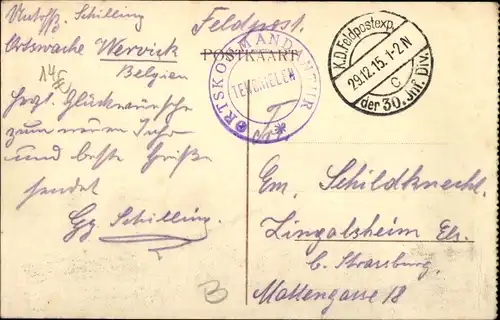 Untoffz. Schilling
Feldpost.
Ortswache Wervick
Belgien
POSTKAART
ORTSKOMMANDANTUR
TENBRIELEN
K.D. Feldpostexp.
29.12.15. 1-2 N
c
der 30. Inf. Div.
Hrzl. Glückwünsche
zum neuen Jahr
und beste Grüße
sendet
Gg Schilling.
Em. Schildknecht.
Lingolsheim Els.
b. Strassburg.
Mattengasse 18
B